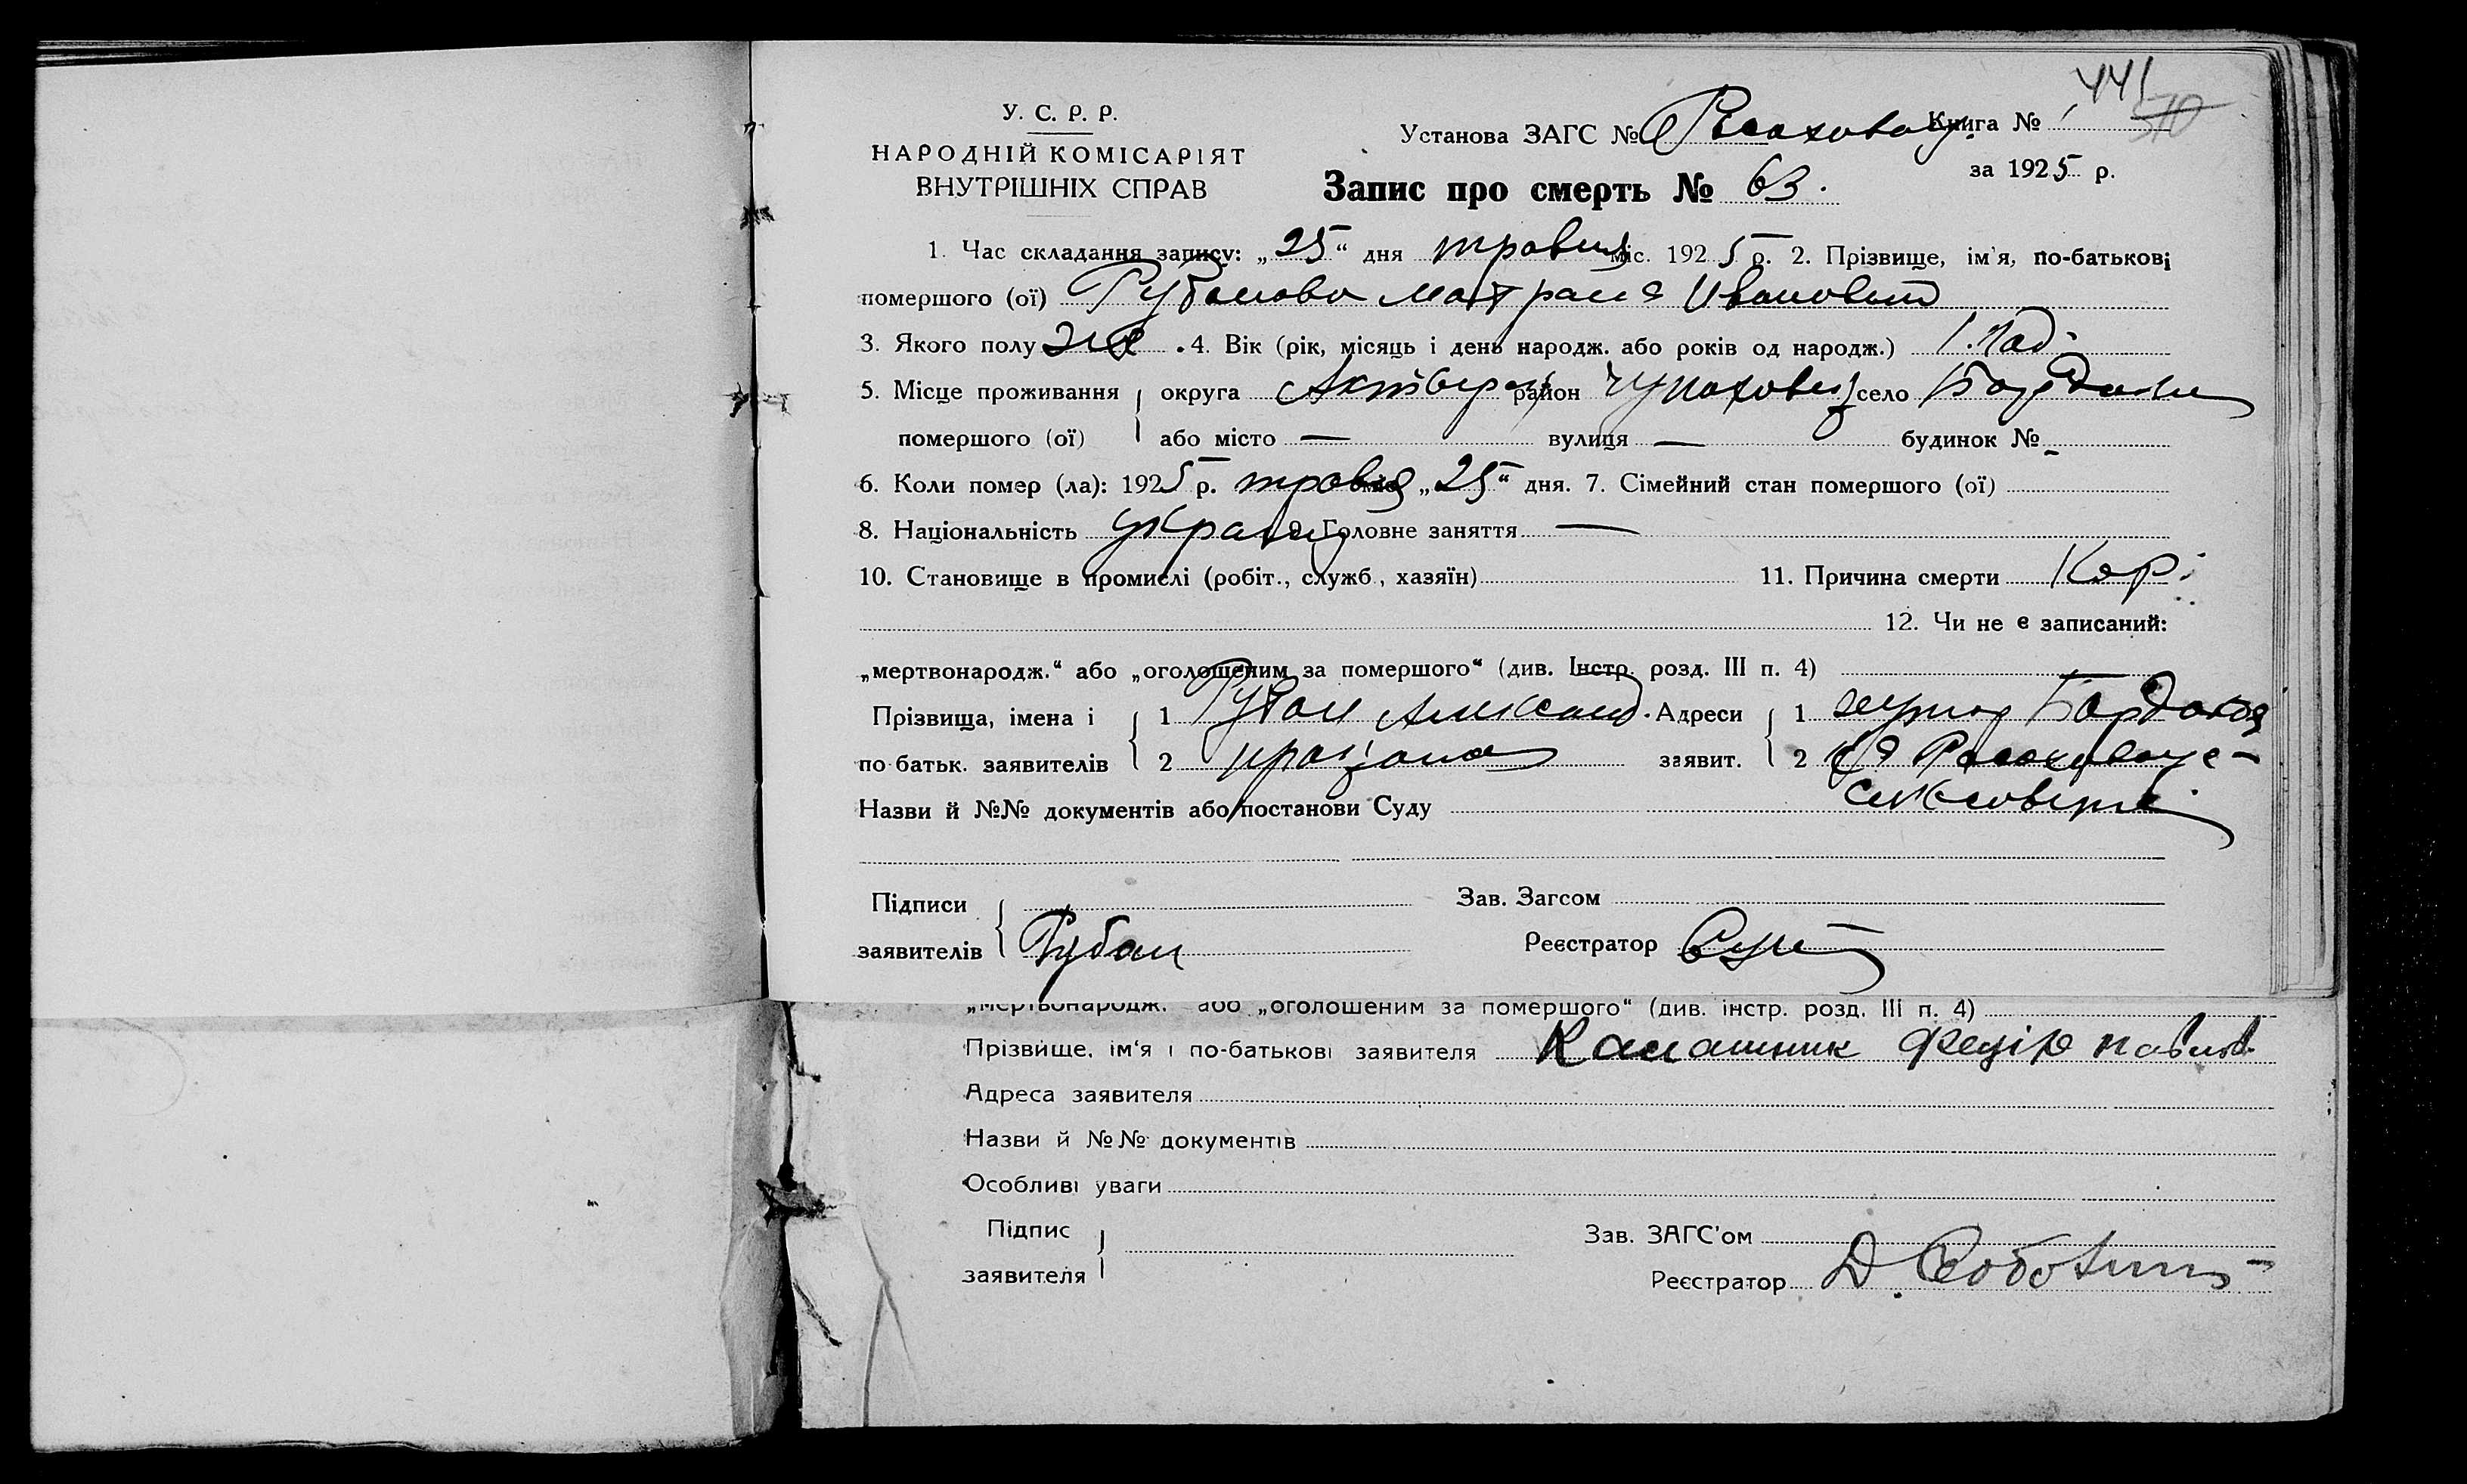 441
510
У. С. Р. Р.
НАРОДНІЙ КОМІСАРІЯТ
ВНУТРІШНІХ СПРАВ
Установа ЗАГС № Книга № 1
за 1925 р.
Запис про смерть № 63.
1. Час складання запису: „25“ дня травня міс. 1925 р. 2. Прізвище, ім'я, по-батькові
помершого (ої) Рубанова Матрана Ивановит
3. Якого полу жін. 4. Вік (рік, місяць і день народж. або років од народж.) 1.
5. Місце проживання округа район село
помершого (ої) або місто — вулиця — будинок № -
6. Коли помер (ла): 1925 р. травня міс. „25“ дня. 7. Сімейний стан помершого (ої)
8. Національність україн 9. Головне заняття —
10. Становище в промислі (робіт., служб., хазяїн) 11. Причина смерти Кор.
12. Чи не є записаний:
„мертвонародж.“ або „оголошеним за помершого“ (див. Інстр. розд. III п. 4)
Прізвища, імена і 1 Рубан Александ. Адреси 1 хутор
по батьк. заявителів 2 заявит. 2
Назви й №№ документів або постанови Суду
Підписи Зав. Загсом
заявителів Рубан Реєстратор
„мертвонародж. або „оголошеним за помершого“ (див. інстр. розд. III п. 4)
Прізвище, ім'я і по-батькові заявителя Калашник Федір Павлов.
Адреса заявителя
Назви й №№ документів
Особливі уваги
Підпис Зав. ЗАГС'ом
заявителя Реєстратор Д.